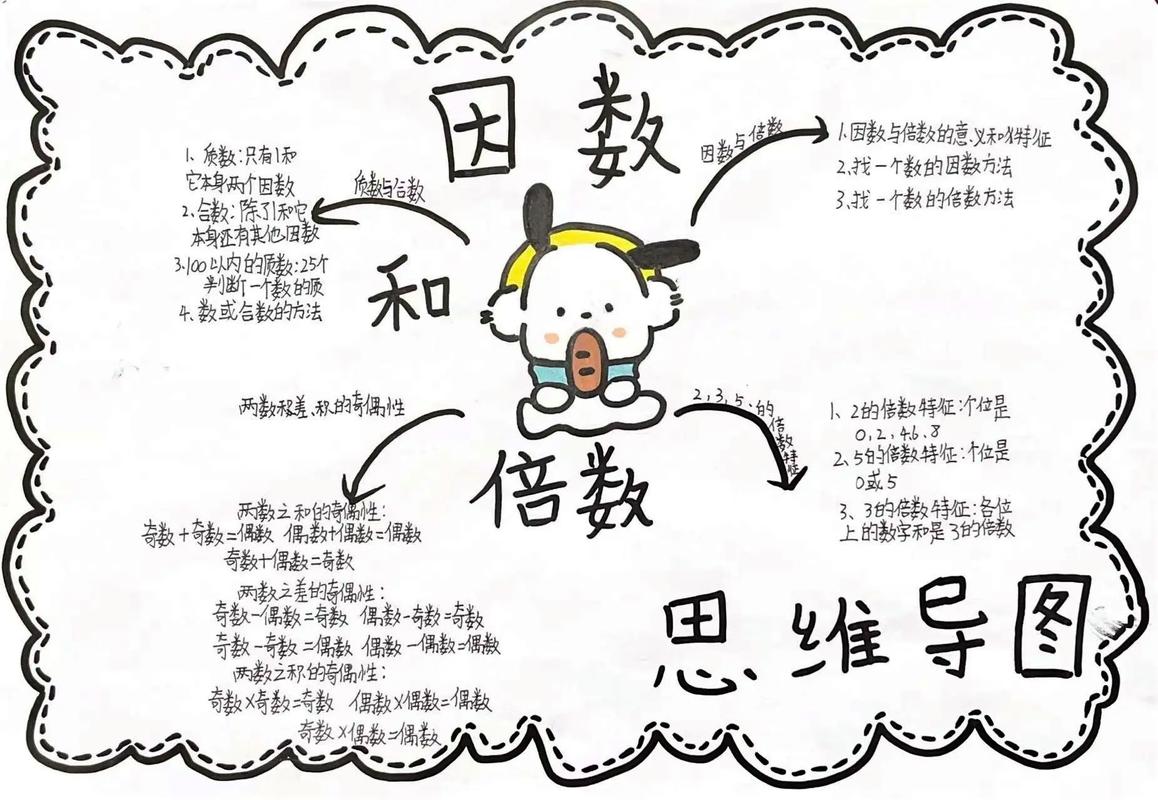 因数
和
倍数
思维导图
因数与倍数
1.因数与倍数的意义和特征
2.找一个数的因数方法
3.找一个数的倍数方法
质数与合数
1、质数:只有1和
它本身两个因数
2.合数:除了1和它
本身还有其他因数
3.100以内的质数:25个
判断一个数的质
4、数或合数的方法
2,3,5、的倍数特征
1、2的倍数特征:个位是
0,2,4.6、8
2、5的倍数特征:个位是
0或5
3、3的倍数特征:各位
上的数字和是3的倍数
两数和差、积的奇偶性
两数之和的奇偶性:
奇数+奇数=偶数 偶数+偶数=偶数
奇数+偶数=奇数
两数之差的奇偶性:
奇数-偶数=奇数 偶数-奇数=奇数
奇数-奇数=偶数 偶数-偶数=偶数
两数之积的奇偶性:
奇数×奇数=奇数 偶数×偶数=偶数
奇数×偶数=偶数